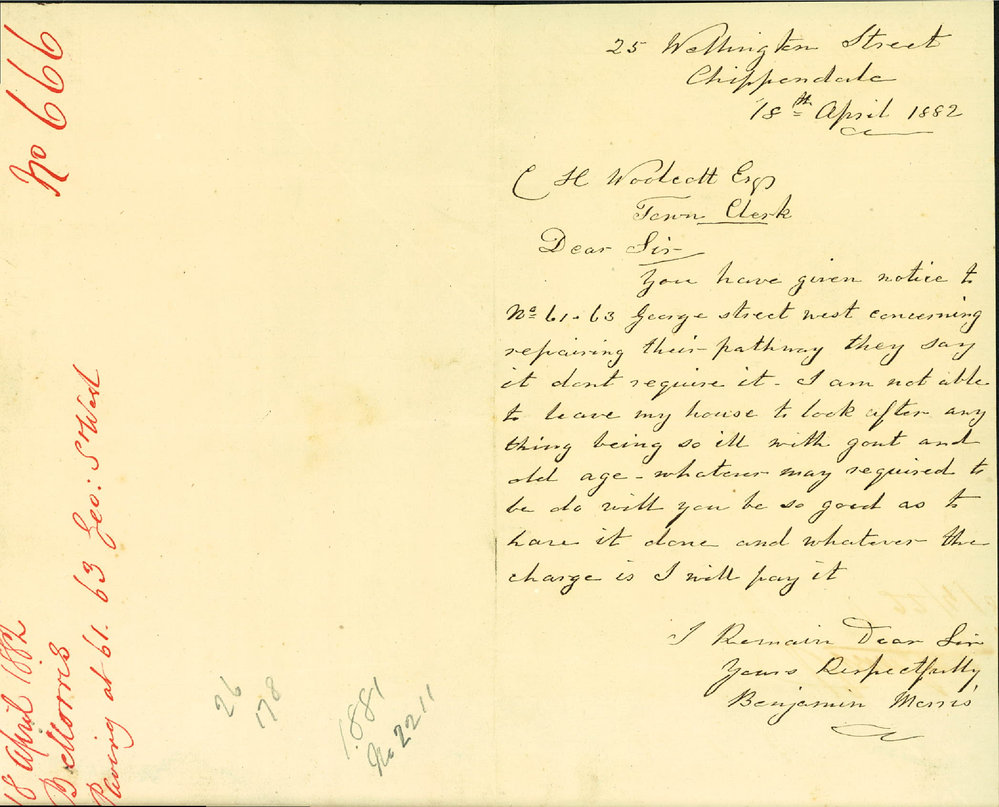 25 Wellington Street
Chippendale
18th April 1882
C H Woolcott Esq
Town Clerk
Dear Sir
You have given notice to
No 61-63 George street west concerning
repairing their pathway they say
it dont require it - I am not able
to leave my house to look after any
thing being so ill with gout and
old age - whatever may required to
be do will you be so good as to
have it done and whatever the
charge is I will pay it
I Remain Dear Sir
Yours Respectfully
Benjamin Morris
No 666
18 April 1882
B Morris
Paving at 61. 63 Geo: St West
26
178
1881
No 2211